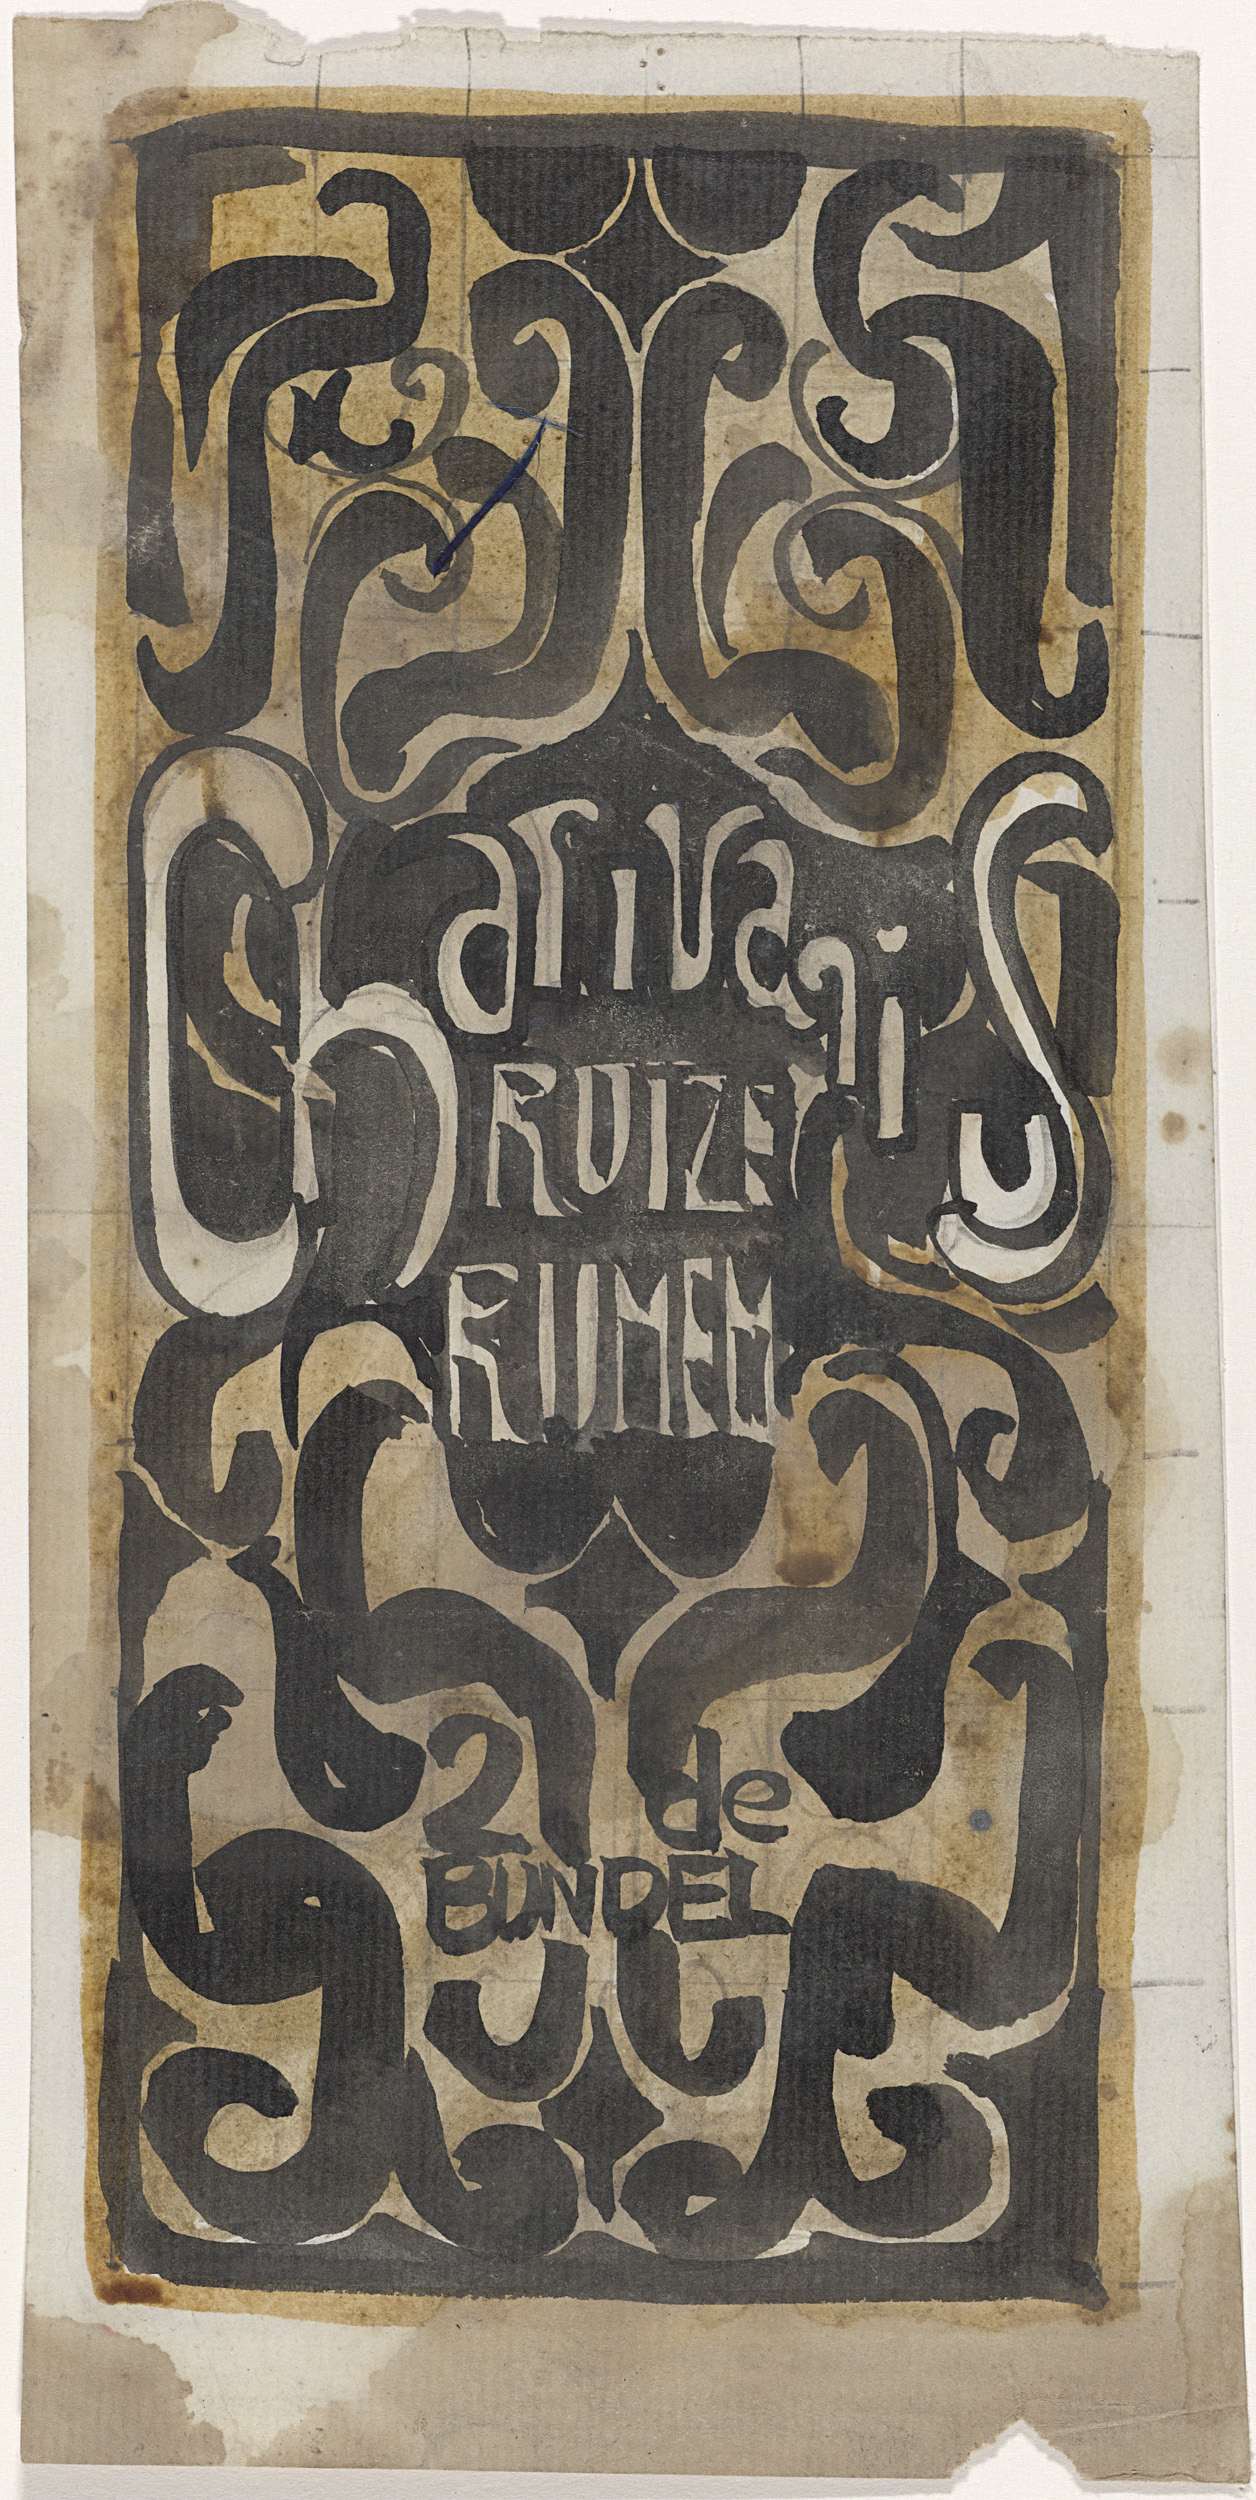 CharivariuS
RUIZE
RIJMEN
2 de
BUNDEL